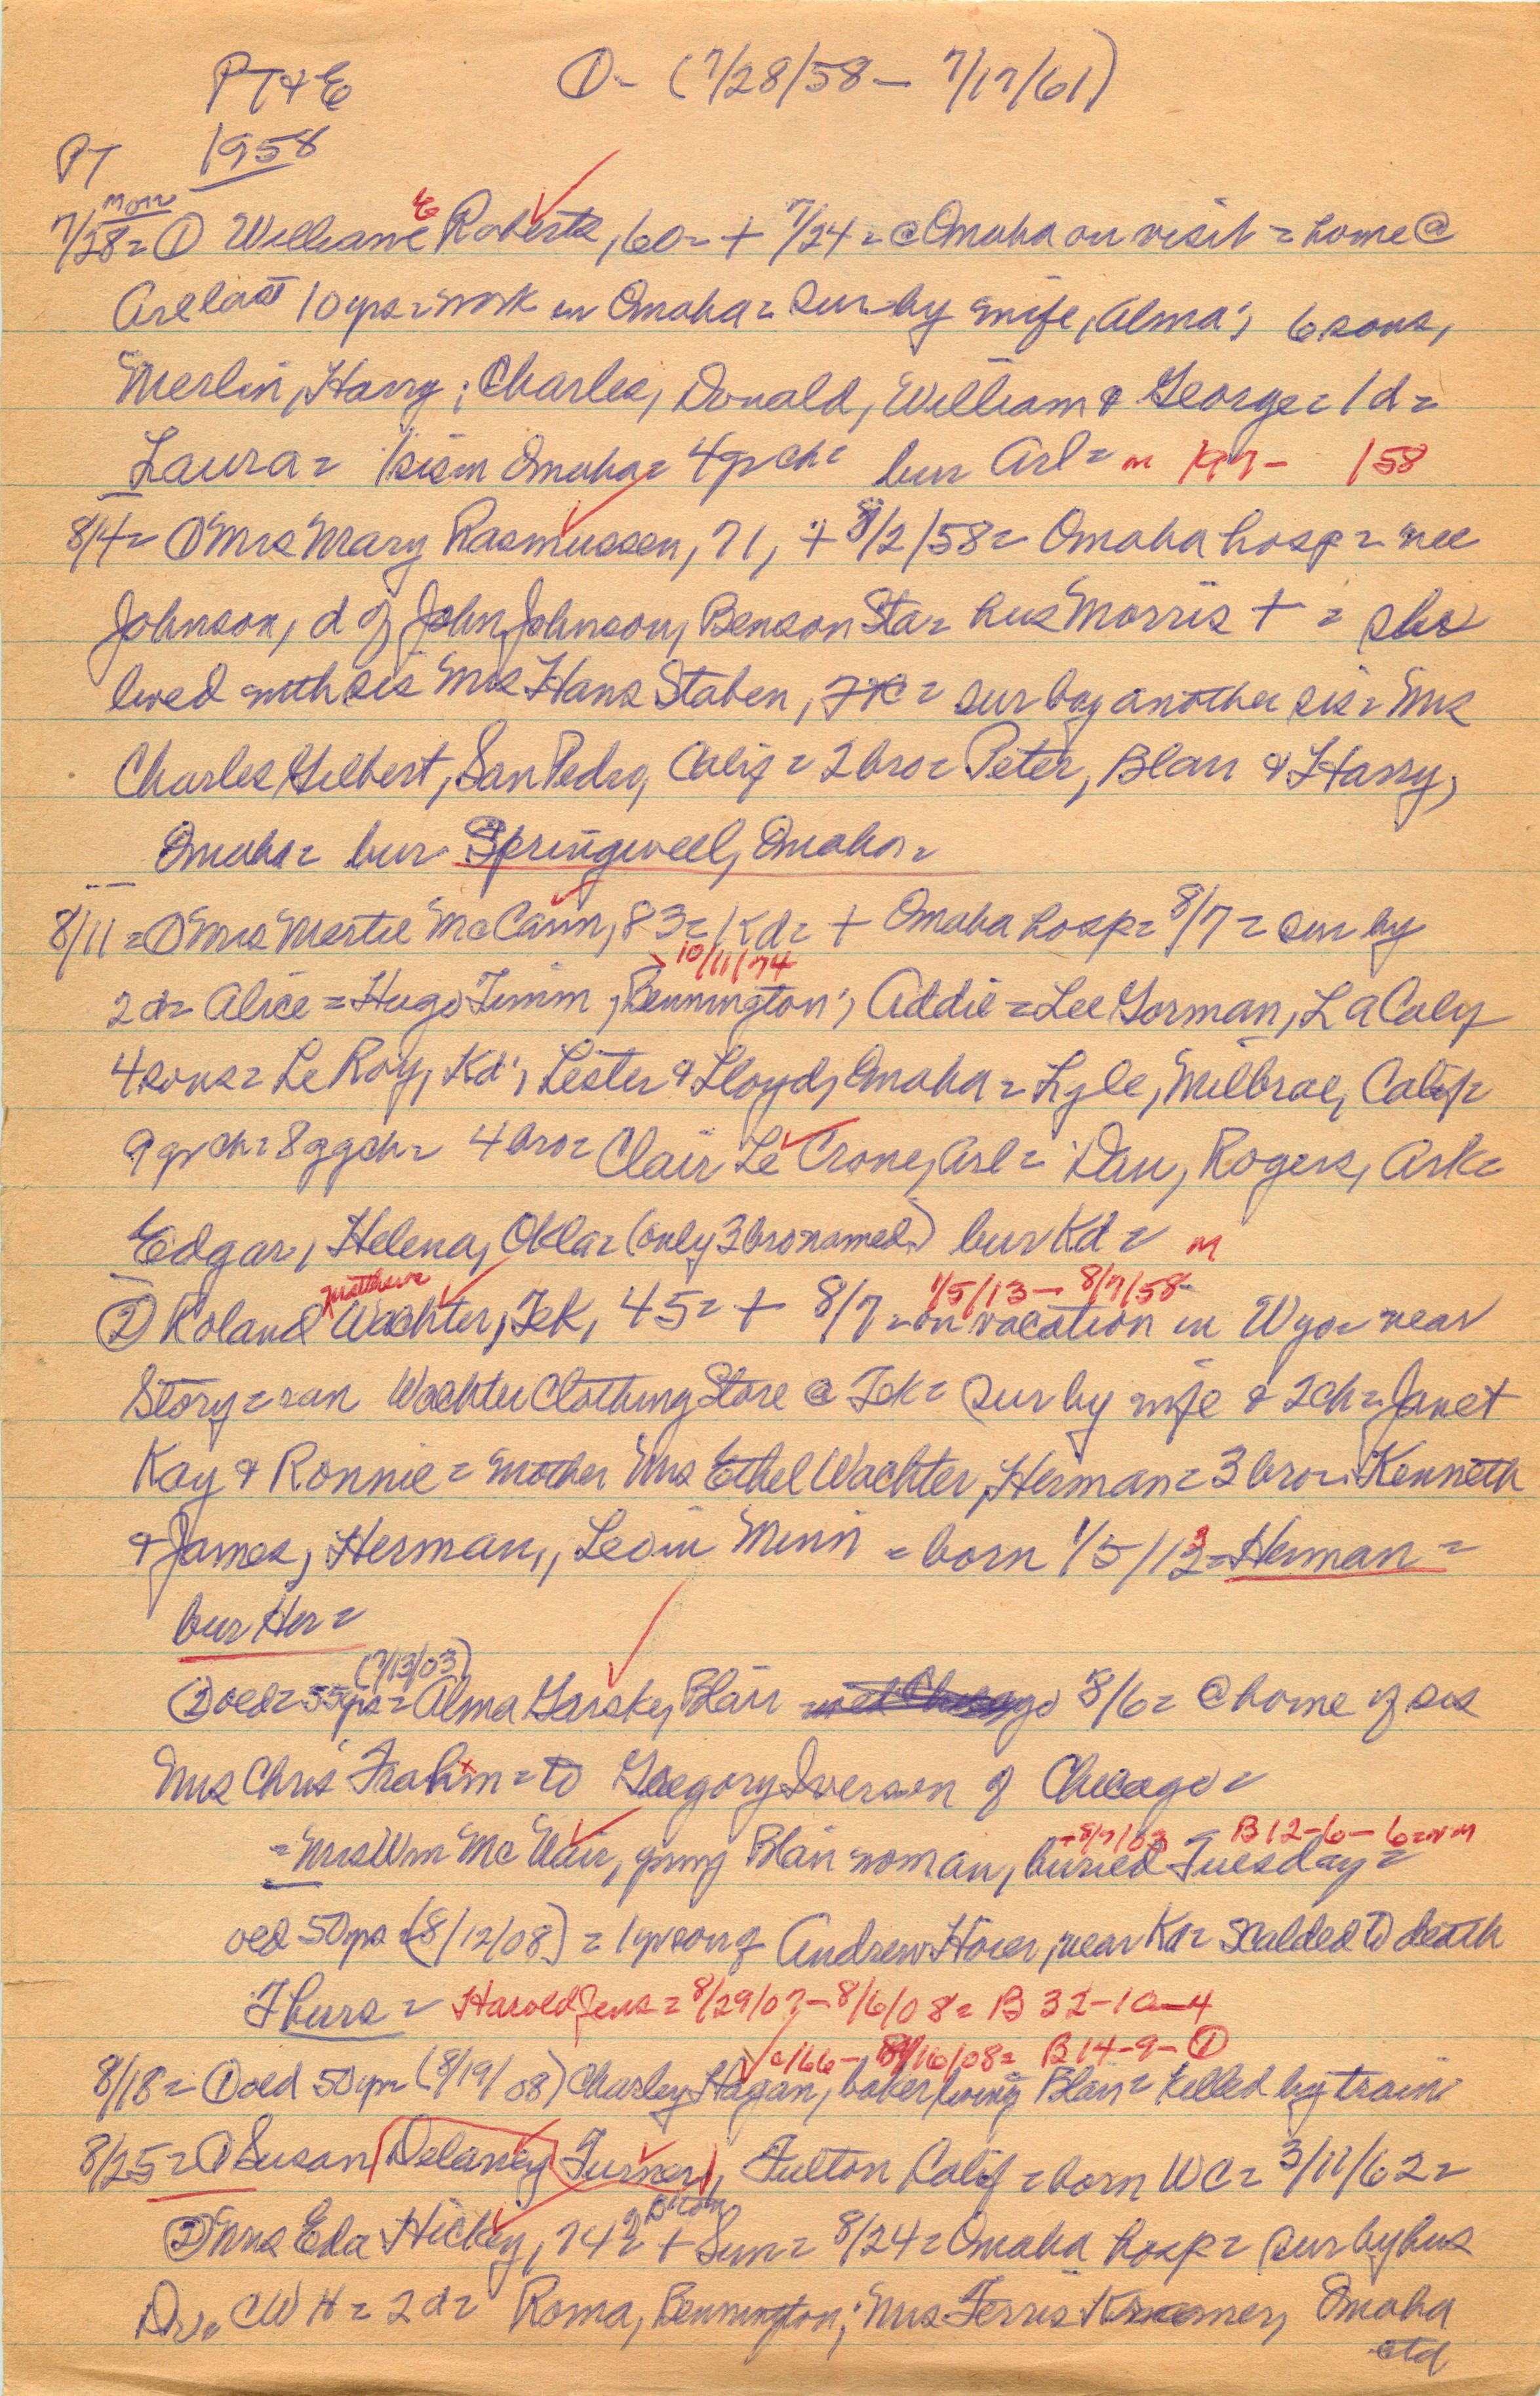 PT & E ① - (7/28/58 - 7/17/61)
PT 1958
Mon E
7/28 = ① William Roberts, 60 = + 7/24 = @ Omaha on visit = home @
Arl last 10 yrs = work in Omaha = sur by wife, Alma; 6 sons,
Merlin, Harry; Charles, Donald, William & George = 1 d =
Laura = 1 sis in Omaha = 4 gr ch = bur Arl = m 158
8/4 = ① Mrs Mary Rasmussen, 71, + 8/2/58 = Omaha hosp = nee
Johnson, d of John Johnson, Benson Sta = hus Morris + = she
lived with sis Mrs Hans Staben, FK = sur by another sis = Mrs
Charles Gilbert, San Pedro, Calif = 2 bro = Peter, Blair & Harry,
Omaha = bur Springwell, Omaha =
8/11 = ① Mrs Mertie McCann, 83 = Kd = + Omaha hosp = 8/7 = sur by
10/11/74
2 d = Alice = Hugo Timm, Bennington; Addie = Lee Gorman, La Caly
4 sons = LeRoy, Kd; Lester & Lloyd, Omaha = Lyle, Milbrae, Calif =
9 gr ch = 8 ggch = 4 bro = Clair Le Crone, Arl = Dan, Rogers, Ark =
Edgar, Helena, Okla = (only 3 bro named) bur Kd = m
Matthews 1/5/13 - 8/7/58
② Roland Wachter, Tek, 45 = + 8/7 = on vacation in Wyo = near
Story = ran Wachter Clothing Store @ Tek = sur by wife & 2 ch = Janet
Kay & Ronnie = mother Mrs Ethel Wachter, Herman = 3 bro = Kenneth
& James, Herman,, Leo in Minn = born 1/5/13 = Herman =
bur Her =
(7/13/03)
② oed = 55 yrs = Alma Garske, Blair 8/6 = @ home of sis
Mrs Chris Frahm = to Gregory Iversen of Chicago =
+ 8/7/03 B 12-6-6 = nm
= Mrs Wm McNair, young Blair woman, buried Tuesday =
oed 50 yrs = (8/12/08) = 1 yr son of Andrew Hover, near Kd = scalded to death
Thurs = Harold Jens = 8/29/07 - 8/6/08 = B 32-10-4
/66 - 8/16/08 = B 14-9-①
8/18 = ① oed 50 yrs = (8/19/08) Charley Hagan, baker living Blair = killed by train
8/25 = ① Susan Delaney Turner, Fulton Calif = born WC = 3/11/62 =
② Mrs Eda Hickey, 74 = + Sun = 8/24 = Omaha hosp = sur by hus
Dr. CWH = 2 d = Roma, Bennington; Mrs Ferris Kraemer, Omaha
ctd